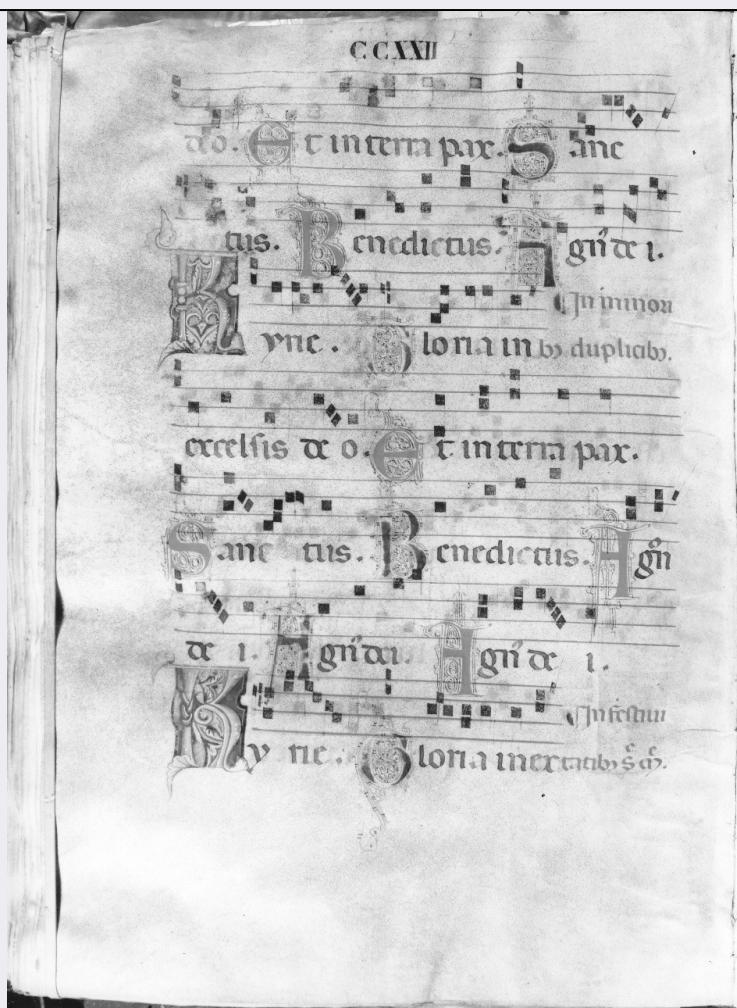 CCXXII
deo. Et in terra pax. Sanc
tus. Benedictus. Agn̄ de i.
In minori
Kyrie. Gloria in bȝ duplicibȝ.
excelsis de o. Et in terra pax.
Sanc tus. Benedictus. Agn̄
de i. Agn̄ dei. Agn̄ de i.
In festiui
Ky rie. Gloria in ex tatibȝ